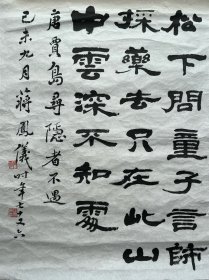 松下問童子言師
採藥去只在此山
中雲深不知處
唐賈島尋隱者不遇
己未九月蔣鳳儀时年七十又六